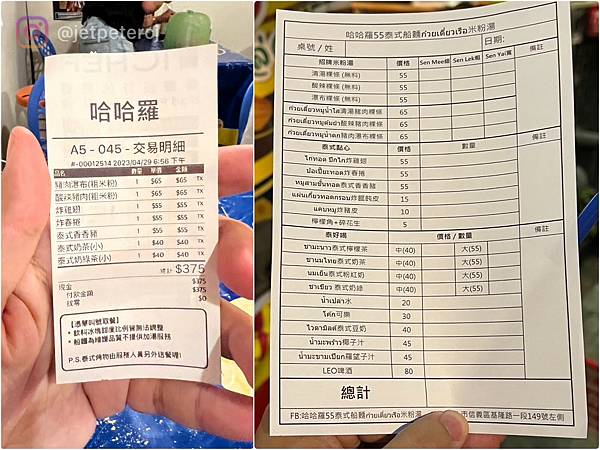 @jetpeterdj
哈哈羅
A5 - 045 - 交易明細
#-00012514 2023/04/29 6:56 下午
品名 數量 單價 金額 TX
豬肉瀑布(粗米粉) 1 $65 $65 TX
酸辣豬肉(粗米粉) 1 $65 $65 TX
炸雞翅 1 $55 $55 TX
炸春捲 1 $55 $55 TX
泰式香香豬 1 $55 $55 TX
泰式奶茶(小) 1 $40 $40 TX
泰式奶綠茶(小) 1 $40 $40 TX
總計 $375
現金 $375
付款金額 $375
找零 $0
【憑單叫號取餐】
* 飲料冰塊甜度比例皆無法調整
* 船麵為維護品質不提供加湯服務
P.S.泰式烤物由服務人員另外送餐喔!
哈哈羅55泰式船麵ก๋วยเตี๋ยวเรือ米粉湯
桌號 / 姓 日期:
招牌米粉湯 價格 Sen Mee細 Sen Lek粗 Sen Yai寬 備註
清湯粿條 (無料) 55
酸辣粿條 (無料) 55
瀑布粿條 (無料) 55
ก๋วยเตี๋ยวหมูน้ำใส清湯豬肉粿條 65
ก๋วยเตี๋ยวหมูต้มยำ酸辣豬肉粿條 65
ก๋วยเตี๋ยวหมูน้ำตก豬肉瀑布粿條 65
泰式點心 價格 數量 備註
ไก่ทอด ปีกไก่炸雞翅 55
ปอเปี๊ยะทอด炸春捲 55
หมูสามชั้นทอด泰式香香豬 55
แผ่นเกี๊ยวทอดกรอบ炸餛飩皮 15
แคบหมู炸豬皮 10
檸檬角+碎花生 5
泰好喝 價格 / 數量 備註
ชามะนาว泰式檸檬茶 中(40) 大(55)
ชานมไทย泰式奶茶 中(40) 大(55)
นมเย็น泰式粉紅奶 中(40) 大(55)
ชาเขียว 泰式奶綠 中(40) 大(55)
น้ำเปล่า水 20
โค้ก可樂 30
ไวตามิลค์泰式豆奶 40
น้ำมะพร้าว椰子汁 45
น้ำมะขามเปียก羅望子汁 45
LEO啤酒 80
總計
FB:哈哈羅55泰式船麵ก๋วยเตี๋ยวเรือ米粉湯 市信義區基隆路一段149號左側